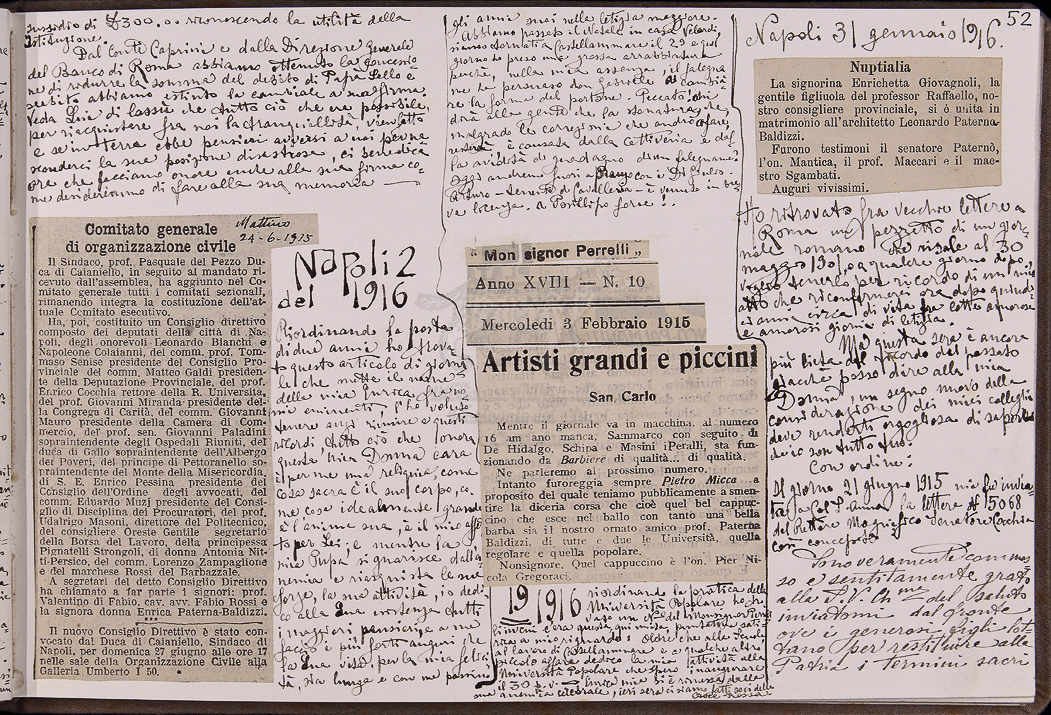 52
sussidio di £300... riconoscendo la utilità della
istituzione.
Dal Conte Caprini e dalla Direzione generale
del Banco di Roma abbiamo ottenuto la concessio
ne di ridurre la somma del debito di Papà Lello e
abbiamo estinto la cambiale a sua firma.
Veda Lui di lassù che tutto ciò che era possibile
per riacquistare fra noi la tranquillità,
e se in terra ebbe pensieri avversi a noi per na
sconderci la sua posizione disastrosa, ci benedica
ora che facciamo onore anche alla sua firma co
me desideriamo di fare alla sua memoria —
Mattino
24-6-1915
Comitato generale
di organizzazione civile
Il Sindaco, prof. Pasquale del Pezzo Du-
ca di Caianiello, in seguito al mandato ri-
cevuto dall'assemblea, ha aggiunto nel Co-
mitato generale tutti i comitati sezionali,
rimanendo integra la costituzione dell'at-
tuale Comitato esecutivo.
Ha, poi, costituito un Consiglio direttivo
composto dei deputati della città di Na-
poli, degli onorevoli Leonardo Bianchi e
Napoleone Colaianni, del comm. prof. Tom-
maso Senise presidente del Consiglio Pro-
vinciale del comm. Matteo Galdi presiden-
te della Deputazione Provinciale, del prof.
Enrico Cocchia rettore della R. Università,
del prof. Giovanni Miranda presidente del-
la Congrega di Carità, del comm. Giovanni
Mauro presidente della Camera di Com-
mercio, del prof. sen. Giovanni Paladini
sopraintendente degli Ospedali Riuniti, del
duca di Gallo sopraintendente dell'Albergo
dei Poveri, del principe di Pettoranello so-
praintendente del Monte della Misericordia,
di S. E. Enrico Pessina presidente del
Consiglio dell'Ordine degli avvocati, del
comm. Eduardo Minzi presidente del Consi-
glio di Disciplina dei Procuratori, del prof.
Udalrigo Masoni, direttore del Politecnico,
del consigliere Oreste Gentile segretario
della Borsa del Lavoro, della principessa
Pignatelli Strongoli, di donna Antonia Nit-
ti-Persico, del comm. Lorenzo Zampaglione
e del marchese Rossi del Barbazzale.
A segretari del detto Consiglio Direttivo
ha chiamato a far parte i signori: prof.
Valentino di Fabio, cav. avv. Fabio Rossi e
la signora donna Enrica Paterna-Baldizzi.
***
Il nuovo Consiglio Direttivo è stato con-
vocato dal Duca di Caianiello, Sindaco di
Napoli, per domenica 27 giugno alle ore 17
nelle sale della Organizzazione Civile alla
Galleria Umberto I 50.
Napoli 2
del 1916
Riordinando la posta
di due anni ho trova
to questo articolo di giorna
le che mette il nome
della mia Enrica fra no
mi eminenti, l'ho voluto
tenere
ricordi tutto ciò che onora
questa mia Donna cara
è per me una reliquia, come
cosa sacra è il suo corpo, co
me cosa idealmente grande
è l'anima sua, è il mio affet
to per Lei; e mentre la
mia Pupa si guarisce dalla
nemia e riacquista le sue
forze, la sua attività, io dedi
co alla sua esistenza tutti
i maggiori pensieri e a me
faccio i più forti auguri che
la sua vita, per la mia felici
tà, sia lunga e con me passino
gli anni suoi nella letizia maggiore.
Abbiamo passato il Natale in casa Velardi,
siamo tornati a Castellammare il 29 e quel
giorno ho preso una grossa arrabbiatura
perché, nella mia assenza, il falegna
me ha persuaso don Gabriele a cambia
re la forma del portone. Peccato!
dirà alla gente che la sconatura che
malgrado le correzioni che andrò a fare,
resterà è causata dalla cattiveria e dal
la avidità di guadagno di un falegname!
Oggi andremo fuori a pranzo con i Di Giulio.
Arturo – tenente di Cavalleria – è venuto in bre
ve licenza. A Posillipo forse!.
" Monsignor Perrelli "
Anno XVIII — N. 10
Mercoledì 3 Febbraio 1915
Artisti grandi e piccini
San Carlo
Mentre il giornale va in macchina, al numero
16 am ano manca, Sammarco con seguito di
De Hidalgo, Schipa e Masini iPeralli, sta fun-
zionando da Barbiere di qualità... di qualità.
Ne parleremo al prossimo numero.
Intanto furoreggia sempre Pietro Micca... a
proposito del quale teniamo pubblicamente a smen-
tire la diceria corsa che cioè quel bel cappuc-
cino che esce nel ballo con tanto una bella
barba sia il nostro ornato amico prof. Paterna
Baldizzi, di tutte e due le Università, quella
regolare e quella popolare.
Nonsignore. Quel cappuccino è l'on. Pier Ni-
cola Gregoraci.
19 1916 riordinando la pratica della
Università Popolare ho tro
vato un N° del
mio riguardi: Oltre che alle scuole,
il lavoro di Castellammare e a qualche altro
piccolo affare dedico la mia attività alla
Università Popolare che spero inaugurare
il 30
anemia cerebrale, ieri sera ci siamo fatti soci della
Croce Rossa
Napoli 31 gennaio 1916.
Nuptialia
La signorina Enrichetta Giovagnoli, la
gentile figliuola del professor Raffaello, no-
stro consigliere provinciale, si è unita in
matrimonio all'architetto Leonardo Paterna-
Baldizzi.
Furono testimoni il senatore Paternò,
l'on. Mantica, il prof. Maccari e il mae-
stro Sgambati.
Auguri vivissimi.
Ho ritrovato fra vecchie lettere a
Roma un pezzetto di un gior
nale romano che risale al 30
maggio 1901, o a qualche giorno dopo.
Voglio tenerlo per ricordo di un mio
atto che riconfermerei ora dopo quindi
ci anni circa di vita fra lotte amorose
e amorosi giorni di letizia.
Ma questa sera è ancora
più lieta del ricordo del passato
giacché posso dire alla mia
Donna, un segno nuovo della
considerazione dei miei colleghi
deve renderti orgogliosa di saperlo
che io son tutto tuo.
Con ordine!
Il giorno 21 giugno 1915 mi fu invia
ta la lettera N° 15068
del Rettore Magnifico Senatore Cocchia
così concepita
Sono veramente commos
so e sentitamente grato
alla S.V. Ch.ma del saluto
inviatomi dal fronte
ove i generosi figli lot
tano per restituire alla
Patria i termini sacri